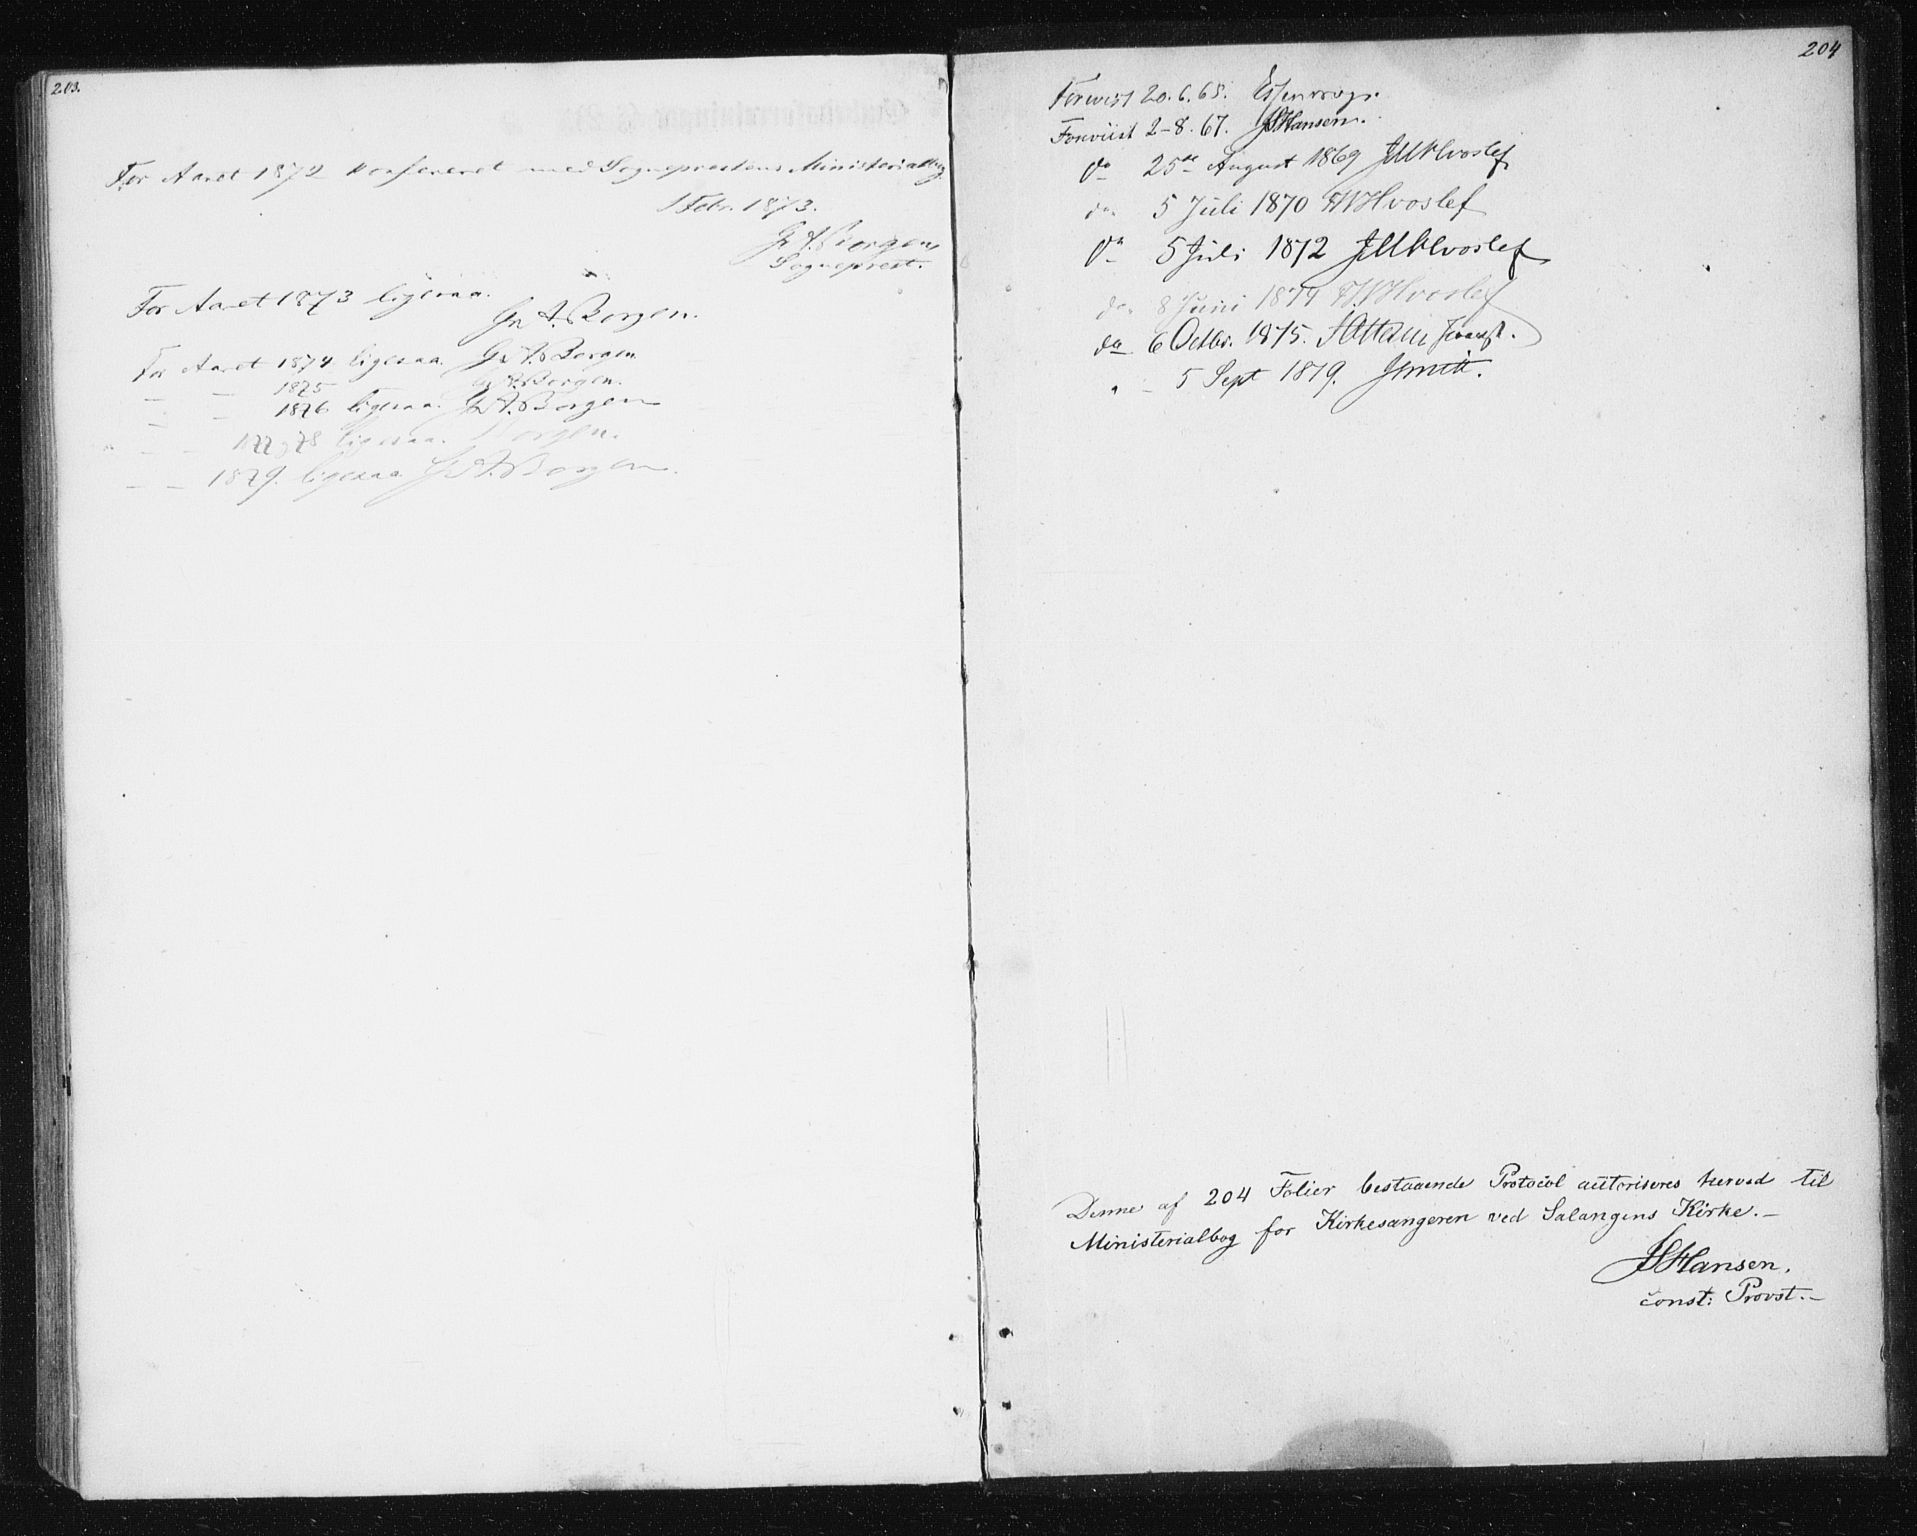 203.
For Aaret 1872 konfereret med Sogneprestens Ministerialbog
1 Febr. 1873.
Gr A. Borgen
Sogneprest.
For Aaret 1873 ligesaa.
Gr A. Borgen.
For Aaret 1874 ligesaa. Gr A. Borgen
— — 1875 Gr A. Borgen.
— — 1876 ligesaa. Gr A. Borgen
— — 1877, 78 ligesaa. Borgen.
— — 1879. ligesaa Gr A. Borgen.
204
Forevist 20.6.65.
Foreviist 2-8.67. Hansen.
do 25de August 1869 Hvoslef
do 5 Juli 1870 Hvoslef
do 5 Juli 1872 Hvoslef
do 8 Juni 1874 Hvoslef
do 6 Octbr. 1875.
" - 5 Sept 1879. Smitt.
Denne af 204 Folier bestaaende Protocol autoriseres herved til
Ministerialbog for Kirkesangeren ved Salangens Kirke.—
Hansen.
const: Provst.—